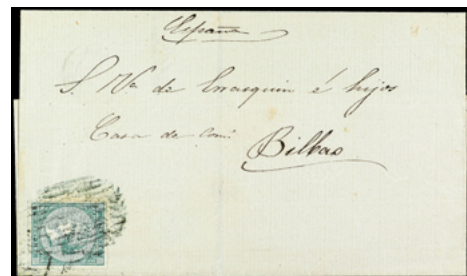 España
S. Vda de Errasquin é hijos
Casa de Comº
Bilbao